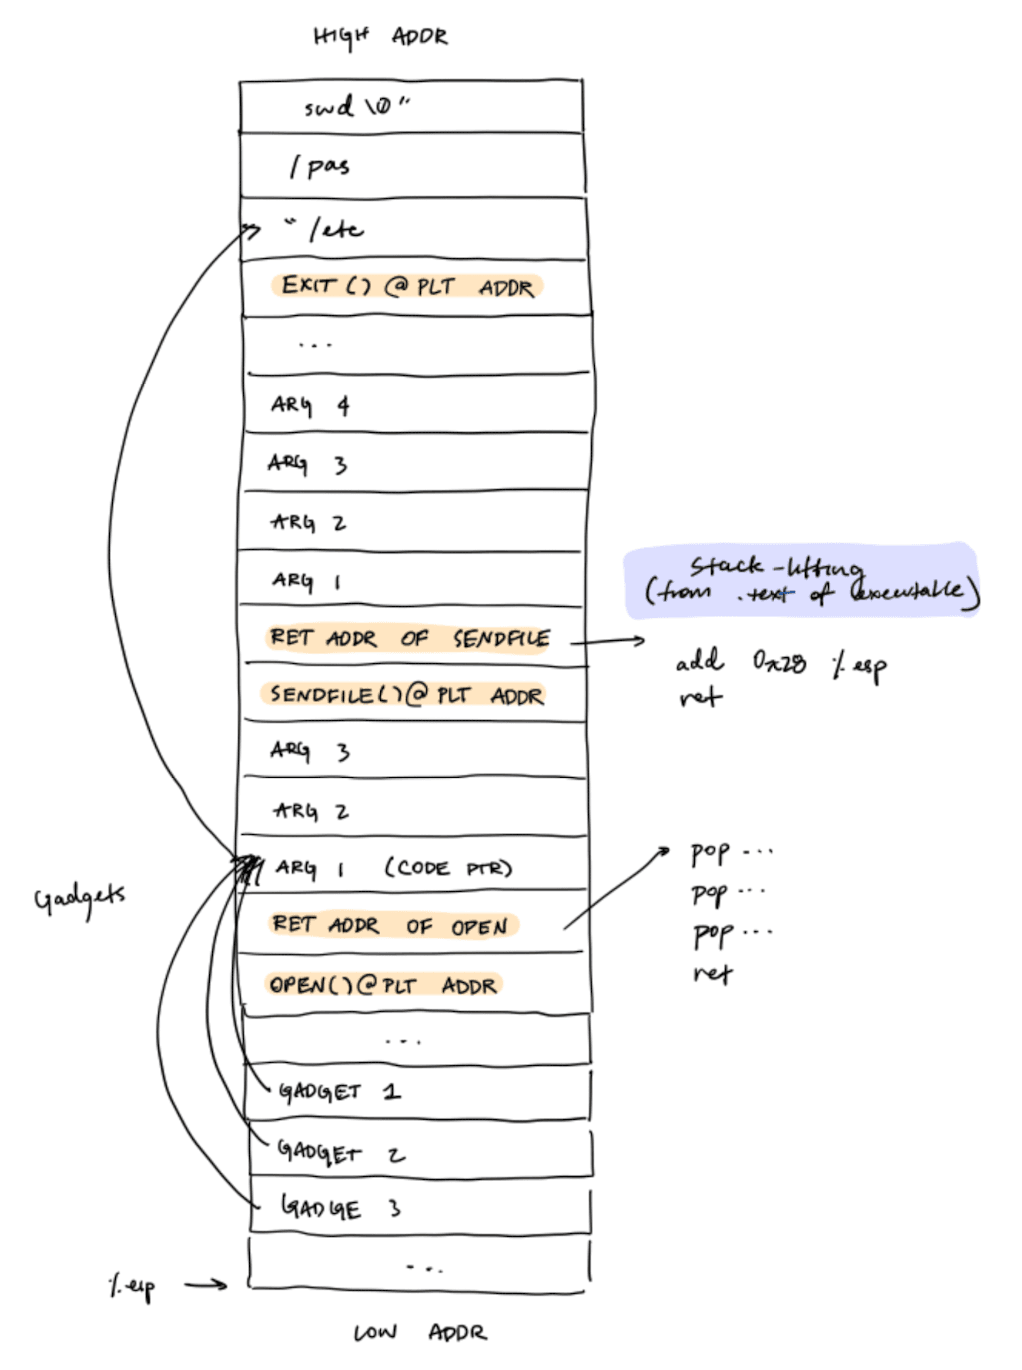 HIGH ADDR
swd \0"
/pas
" /etc
EXIT() @ PLT ADDR
...
ARG 4
ARG 3
ARG 2
ARG 1
Stack-lifting
(from .text of executable)
RET ADDR OF SENDFILE
add 0x28 %esp
ret
SENDFILE()@ PLT ADDR
ARG 3
ARG 2
ARG 1 (CODE PTR)
pop ...
pop ...
pop ...
ret
Gadgets
RET ADDR OF OPEN
OPEN()@PLT ADDR
...
GADGET 1
GADGET 2
GADGE 3
...
%esp
LOW ADDR